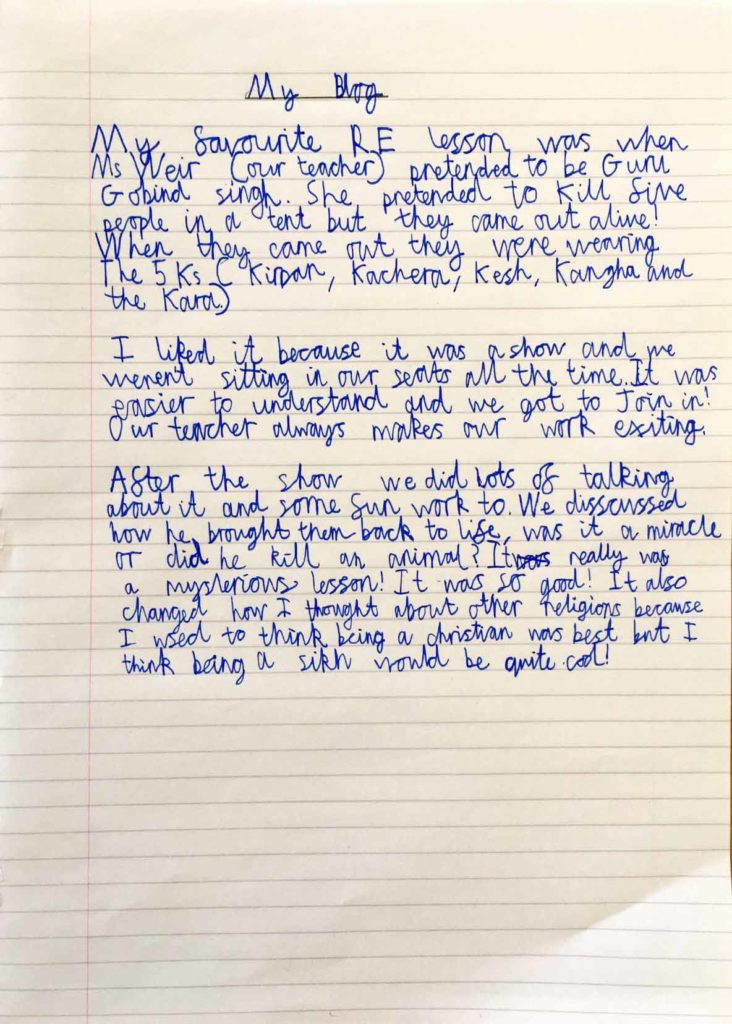 My Blog
My favourite R.E lesson was when
Ms Weir (our teacher) pretended to be Guru
Gobind singh. She pretended to kill five
people in a tent but they came out alive!
When they came out they were wearing
the 5 Ks ( Kirpan, Kachera, Kesh, Kangha and
the Kara.)
I liked it because it was a show and we
weren't sitting in our seats all the time. It was
easier to understand and we got to Join in!
Our teacher always makes our work exiting.
After the show we did lots of talking
about it and some fun work to. We disscussed
how he brought them back to life, was it a miracle
or did he kill an animal? It really was
a mysterious lesson! It was so good! It also
changed how I thought about other religions because
I used to think being a christian was best but I
think being a sikh would be quite cool!